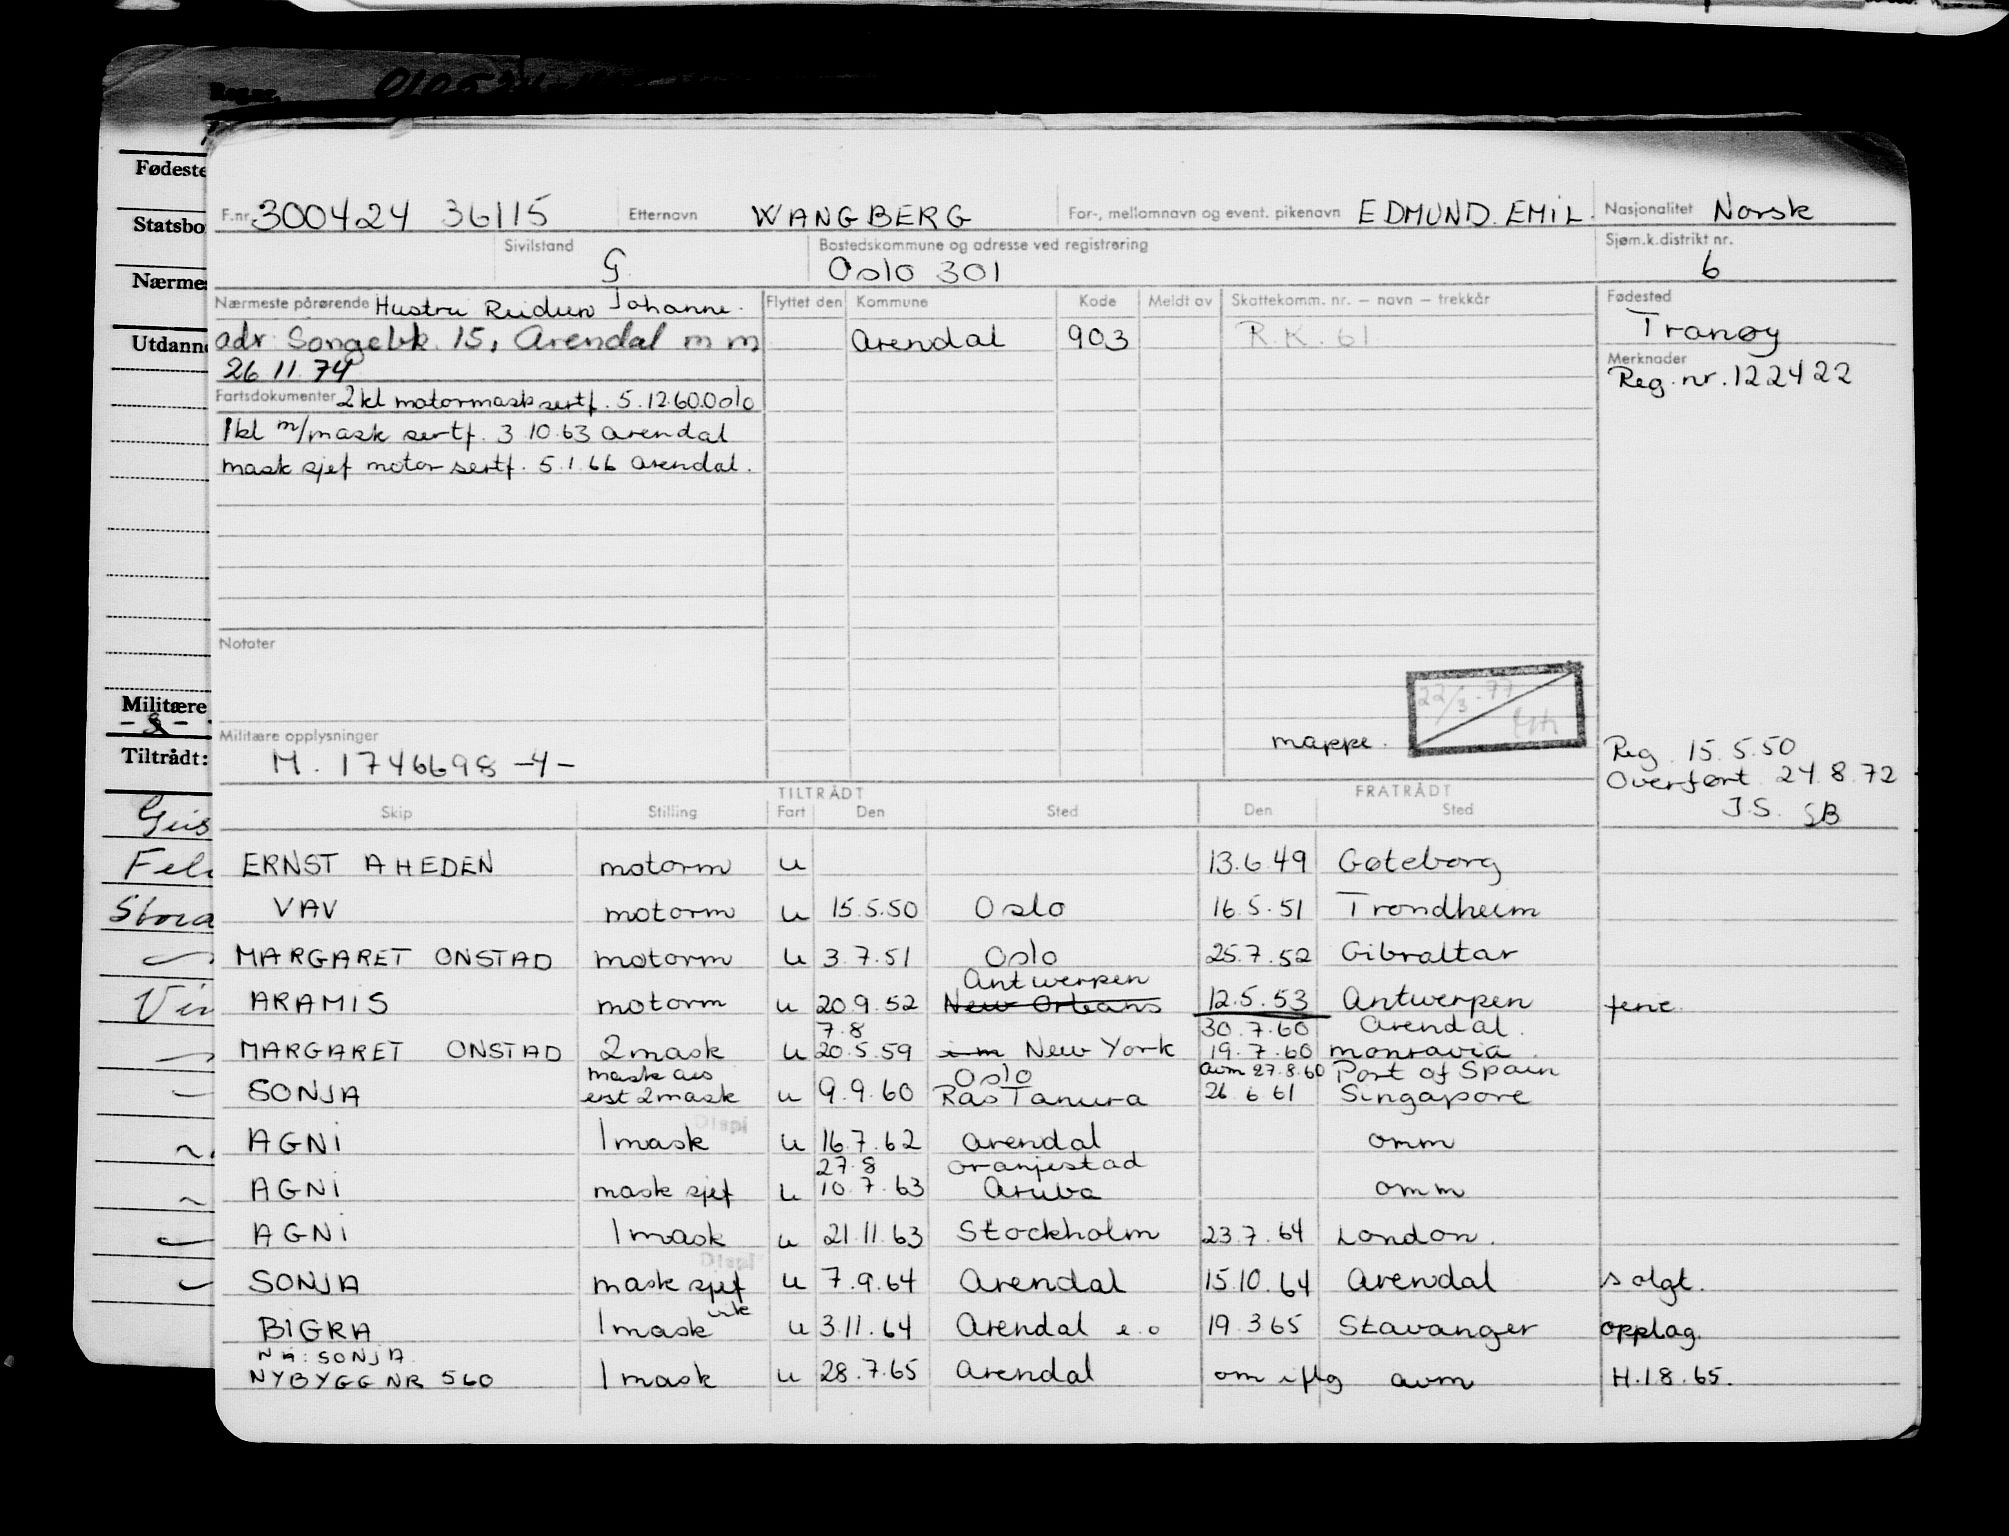 F.nr. 300424 36115 Etternavn WANGBERG For-, mellomnavn og event. pikenavn EDMUND. EMIL. Nasjonalitet Norsk
Sivilstand G. Bostedskommune og adresse ved registrering Oslo 301 Sjøm.k.distrikt nr. 6
Nærmeste pårørende Hustru Reidun Johanne. Flyttet den Kommune Kode Meldt av Skattekomm. nr. — navn — trekkår Fødested
adr Songebk 15, Arendal m m Arendal 903 R.K. 61 Tranøy
26 11. 74 Merknader
Reg. nr. 122422
Fartsdokumenter 2 kl motormask sertf. 5.12.60 Oslo
1 kl m/mask sertf. 3 10.63 Arendal
mask sjef motor sertf. 5.1.66 Arendal.
Notater
22/3-77
mappe.
Militære opplysninger
M. 1746698 -4-
Reg. 15.5.50
Overført 24.8.72
J.S. SB
TILTRÅDT FRATRÅDT
Skip Stilling Fart Den Sted Den Sted
ERNST A HEDEN motorm u 13.6.49 Gøteborg
VAV motorm u 15.5.50 Oslo 16.5.51 Trondheim
MARGARET ONSTAD motorm u 3.7.51 Oslo 25.7.52 Gibraltar
Antwerpen
ARAMIS motorm u 20.9.52 New Orleans 12.5.53 Antwerpen ferie.
7.8 30.7.60 Arendal.
MARGARET ONSTAD 2 mask u 20.5.59 i m New York 19.7.60 monravia.
mask ass Oslo avm 27.8.60 Port of Spain
SONJA est 2 mask u 9.9.60 Ras Tanura 26.6 61 Singapore
Displ
AGNI 1 mask u 16.7.62 Arendal omm
27.8 Oranjestad
AGNI mask sjef u 10.7.63 Aruba omm
AGNI 1 mask u 21.11.63 Stockholm 23.7.64 London.
Displ
SONJA mask sjef u 7.9.64 Arendal 15.10.64 Arendal solgt.
BIGRA 1 mask u 3.11.64 Arendal e.o 19.3 65 Stavanger opplag.
Nå: SONJA
NYBYGG NR 560 1 mask u 28.7.65 Arendal om iflg avm H.18.65.
Fødeste
Statsbo
Nærmes
Utdann
Militære
Tiltrådt: